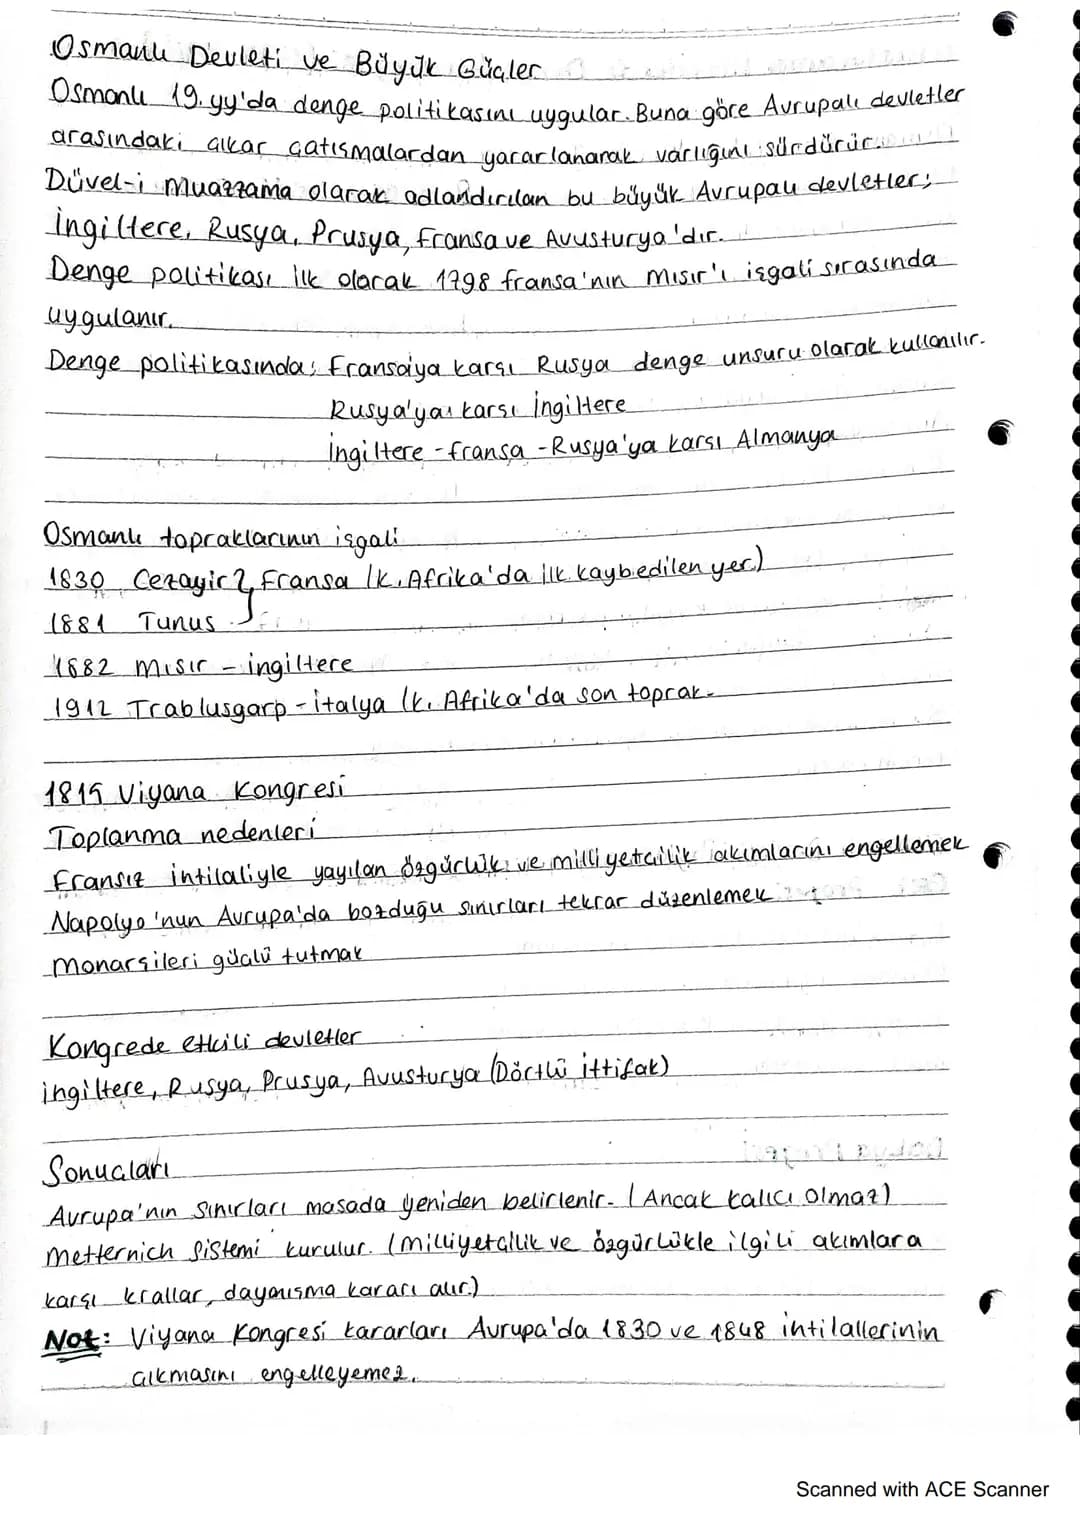 Osmanlı Devleti ve Büyük Güçler
Osmanlı 19.yy'da denge politikasını uygular. Buna göre Avrupalı devletler
arasındaki çıkar çatışmalardan yararlanarak varlığını sürdürür.
Düvel-i Muazzama olarak adlandırılan bu büyük Avrupalı devletler;
İngiltere, Rusya, Prusya, Fransa ve Avusturya'dır.
Denge politikası ilk olarak 1798 fransa'nın Mısır'ı işgali sırasında
uygulanır.
Denge politikasında; Fransa'ya karşı Rusya denge unsuru olarak kullanılır.
Rusya'ya karşı İngiltere
İngiltere - fransa - Rusya'ya karşı Almanya
Osmanlı topraklarının işgali
1830 Cezayir } Fransa (K. Afrika'da ilk kaybedilen yer)
1881 Tunus
1882 Mısır - ingiltere
1912 Trablusgarp - italya (K. Afrika'da son toprak.
1815 Viyana Kongresi
Toplanma nedenleri
Fransız intilaliyle yayılan özgürlük ve milliyetçilik akımlarını engellemek
Napolyo'nun Avrupa'da bozduğu sınırları tekrar düzenlemek
Monarşileri güçlü tutmak
Kongrede etkili devletler
ingiltere, Rusya, Prusya, Avusturya (Dörtlü ittifak)
Sonuçları
Avrupa'nın sınırları masada yeniden belirlenir. (Ancak kalıcı olmaz)
Metternich Sistemi kurulur. (Milliyetçilik ve özgürlükle ilgili akımlara
karşı krallar, dayanışma kararı alır.)
Not: Viyana Kongresi kararları Avrupa'da 1830 ve 1848 ihtilallerinin
çıkmasını engelleyemez.
Scanned with ACE Scanner